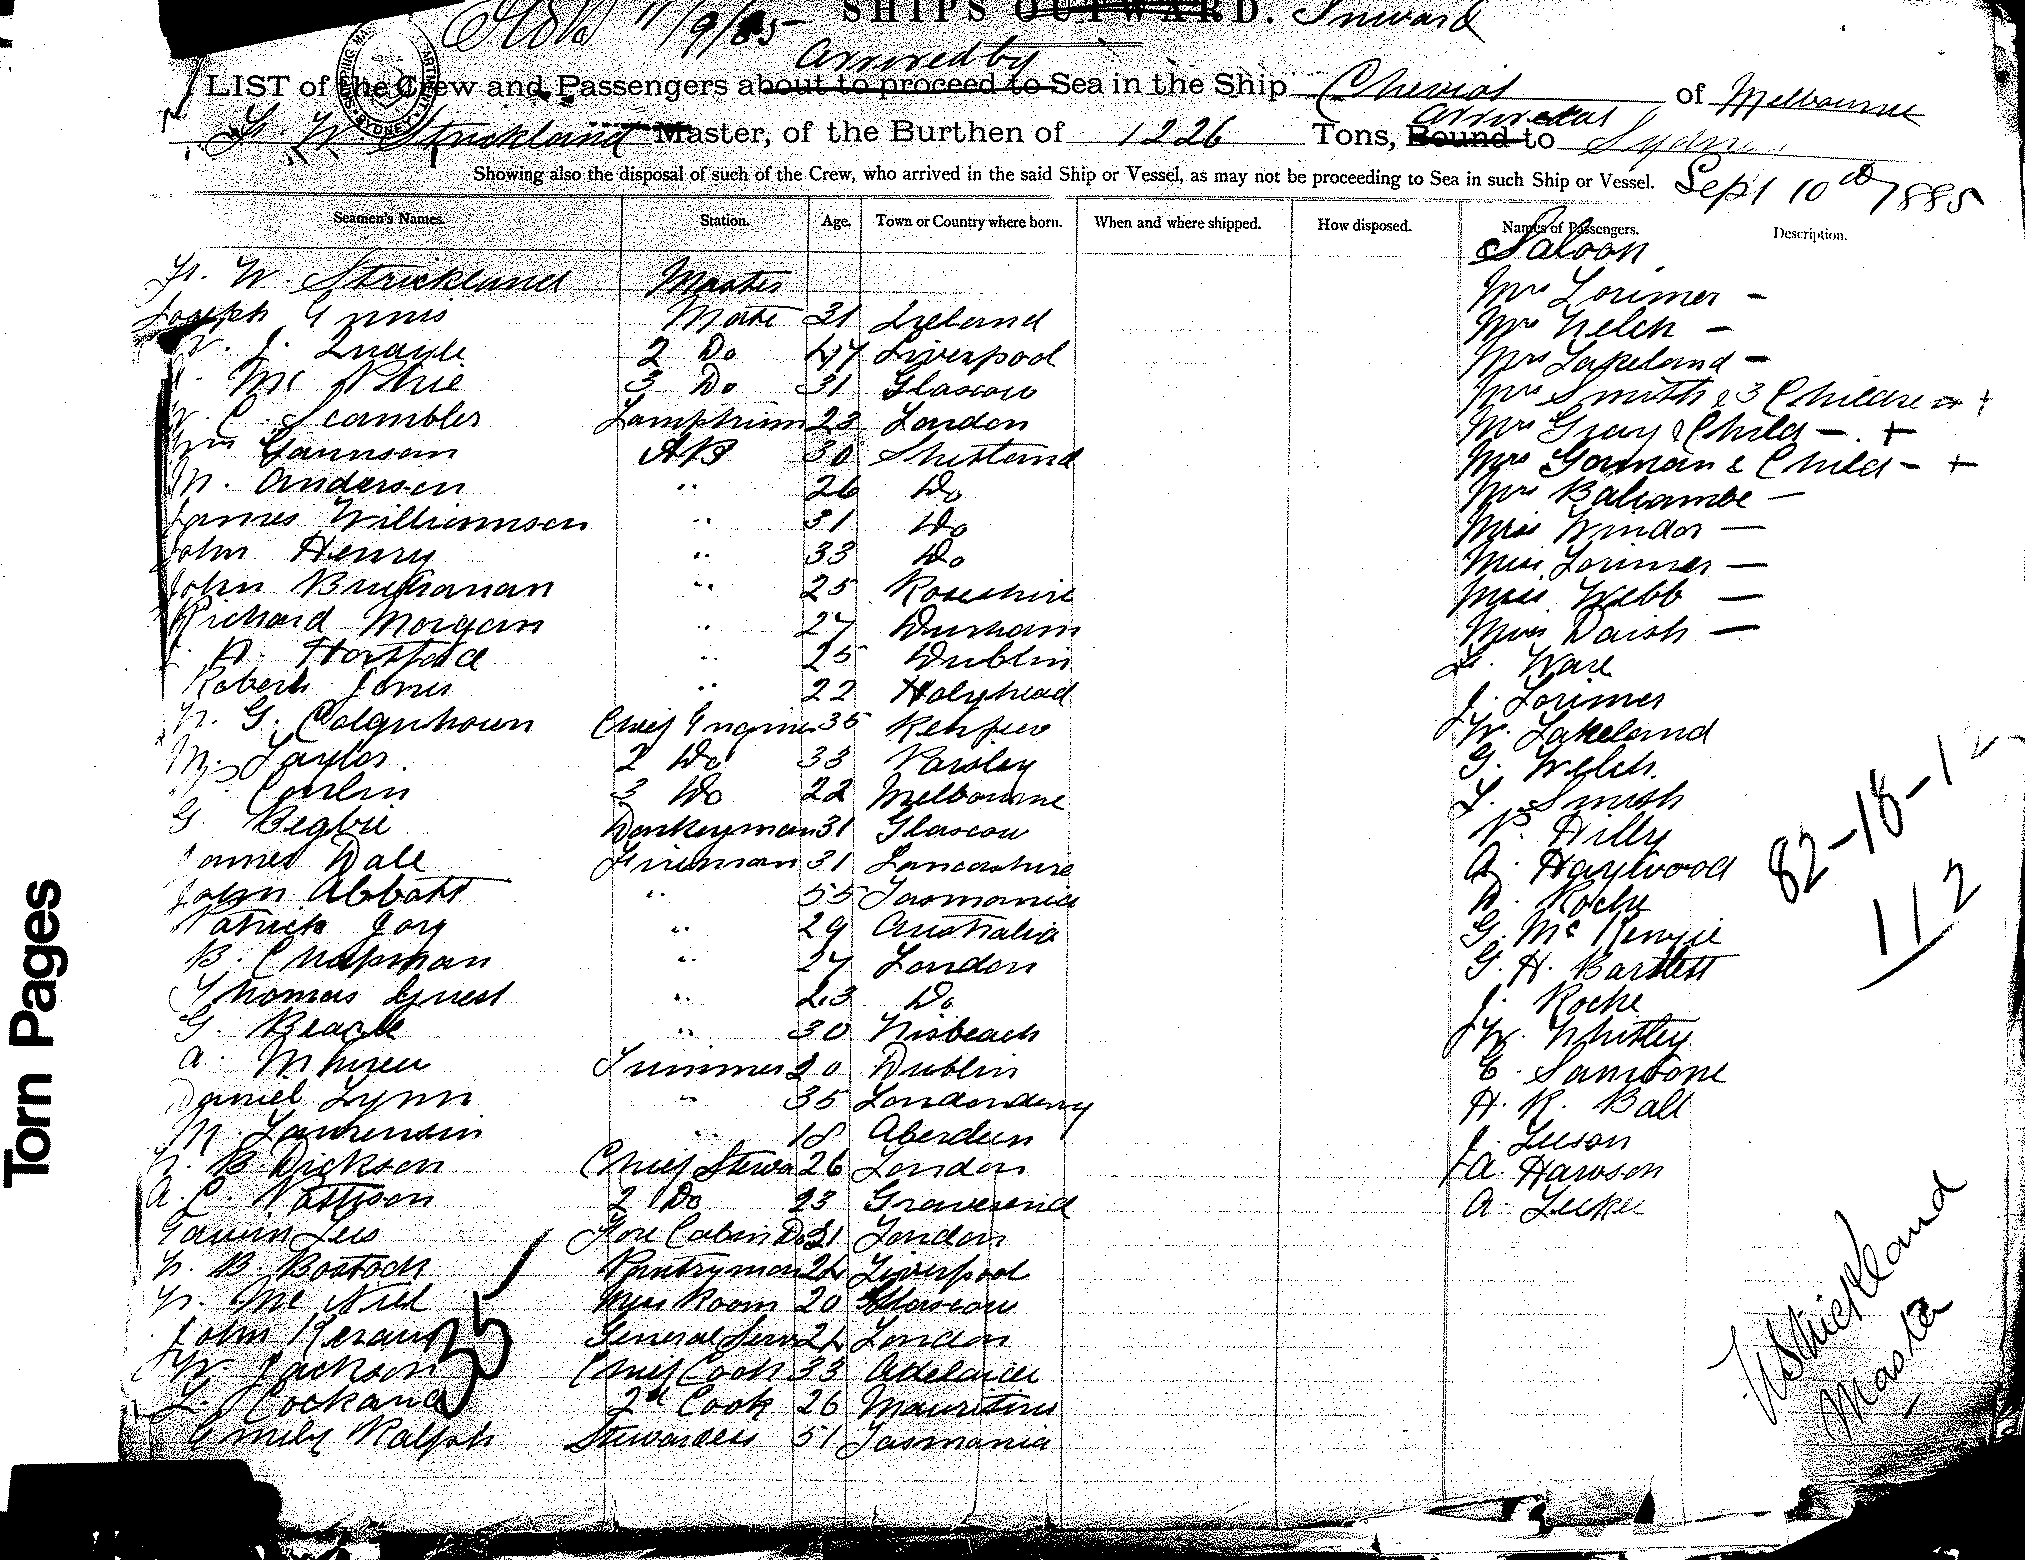 SHIPS OUTWARD. Inward
11/9/85
arrived by
LIST of the Crew and Passengers about to proceed to Sea in the Ship Cheviot of Melbourne
arrived at
Strickland Master, of the Burthen of 1226 Tons, Bound to Sydney
Showing also the disposal of such of the Crew, who arrived in the said Ship or Vessel, as may not be proceeding to Sea in such Ship or Vessel. Sept 10th 1885
Seamen's Names. Station. Age. Town or Country where born. When and where shipped. How disposed. Names of Passengers. Description.
W. Strickland Master
Joseph Ennis Mate 31 Ireland
J. Quayle 2 Do 47 Liverpool
Mc Phie 3 Do 31 Glascow
C. Scambler Lamptrim 23 London
Gaunson AB 30 Shetland
M. Anderson " 26 Do
James Williamson " 31 Do
John Henry " 33 Do
John Buchanan " 25 Roseshire
Richard Morgan " 27 Durham
Horsface " 25 Dublin
Robert Jones " 22 Holyhead
G. Colquhoun Chief Engineer 35 Renfrew
Taylor 2 Do 33 Paisley
Conlin 3 Do 22 Melbourne
G Begbie Donkeyman 31 Glascow
James Dale Fireman 31 Lancashire
John Abbott " 55 Tasmania
Patrick Joy " 29 Australia
B. Chapman " 27 London
Thomas Guest " 23 Do
G. Beagle " 30 Wisbeach
A. Trimmer 20 Dublin
Daniel Lynn " 35 Londonderry
M. Laurenson " 18 Aberdeen
B Dickson Chief Stewa 26 London
A. C. Pattison 2 Do 23 Gravesend
Gavin Lees Fore Cabin Do 21 London
B. Bostock Pantryman 24 Liverpool
Mc Niel Mess Room 20 Glascow
John Kerans General Serv 24 London
W. Jackson Chief Cook 33 Adelaide
Cockana 2nd Cook 26 Mauritius
Emily Ralph Stewardess 51 Tasmania
35
Saloon
Mrs Lorimer -
Mrs Welch -
Mrs Lakeland -
Mrs Smith & 3 Children - +
Mrs Gray & Child - +
Mrs Gorman & Child - +
Mrs Balcambe -
Miss Windor -
Miss Lorimer -
Miss Webb -
Miss Daish -
Ware
J. Lorimer
W. Lakeland
G. Welch
Smith
P. Hilly
A. Haylwood
Roche
G. Mc Kenzie
G. H. Bartlett
J. Roche
W. Whitley
E. Samsone
H. R. Ball
J. Leeson
A. Hawson
A. Lecke
82-18-12
112
Strickland
Master
Torn Pages